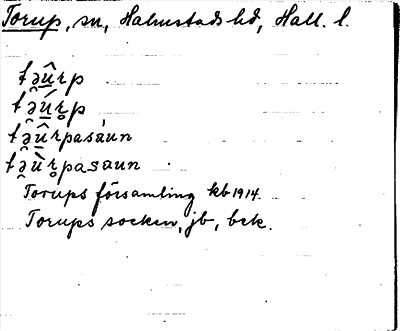 Torup, sn, Halmstads hd, Hall. l.
tə̯û̱rp
tə̯ú̱r̥p
tə̯û̱r̥pasáun
tə̯ù̱r̥pasaun
Torups församling kb 1914.
Torups socken, jb, bck.